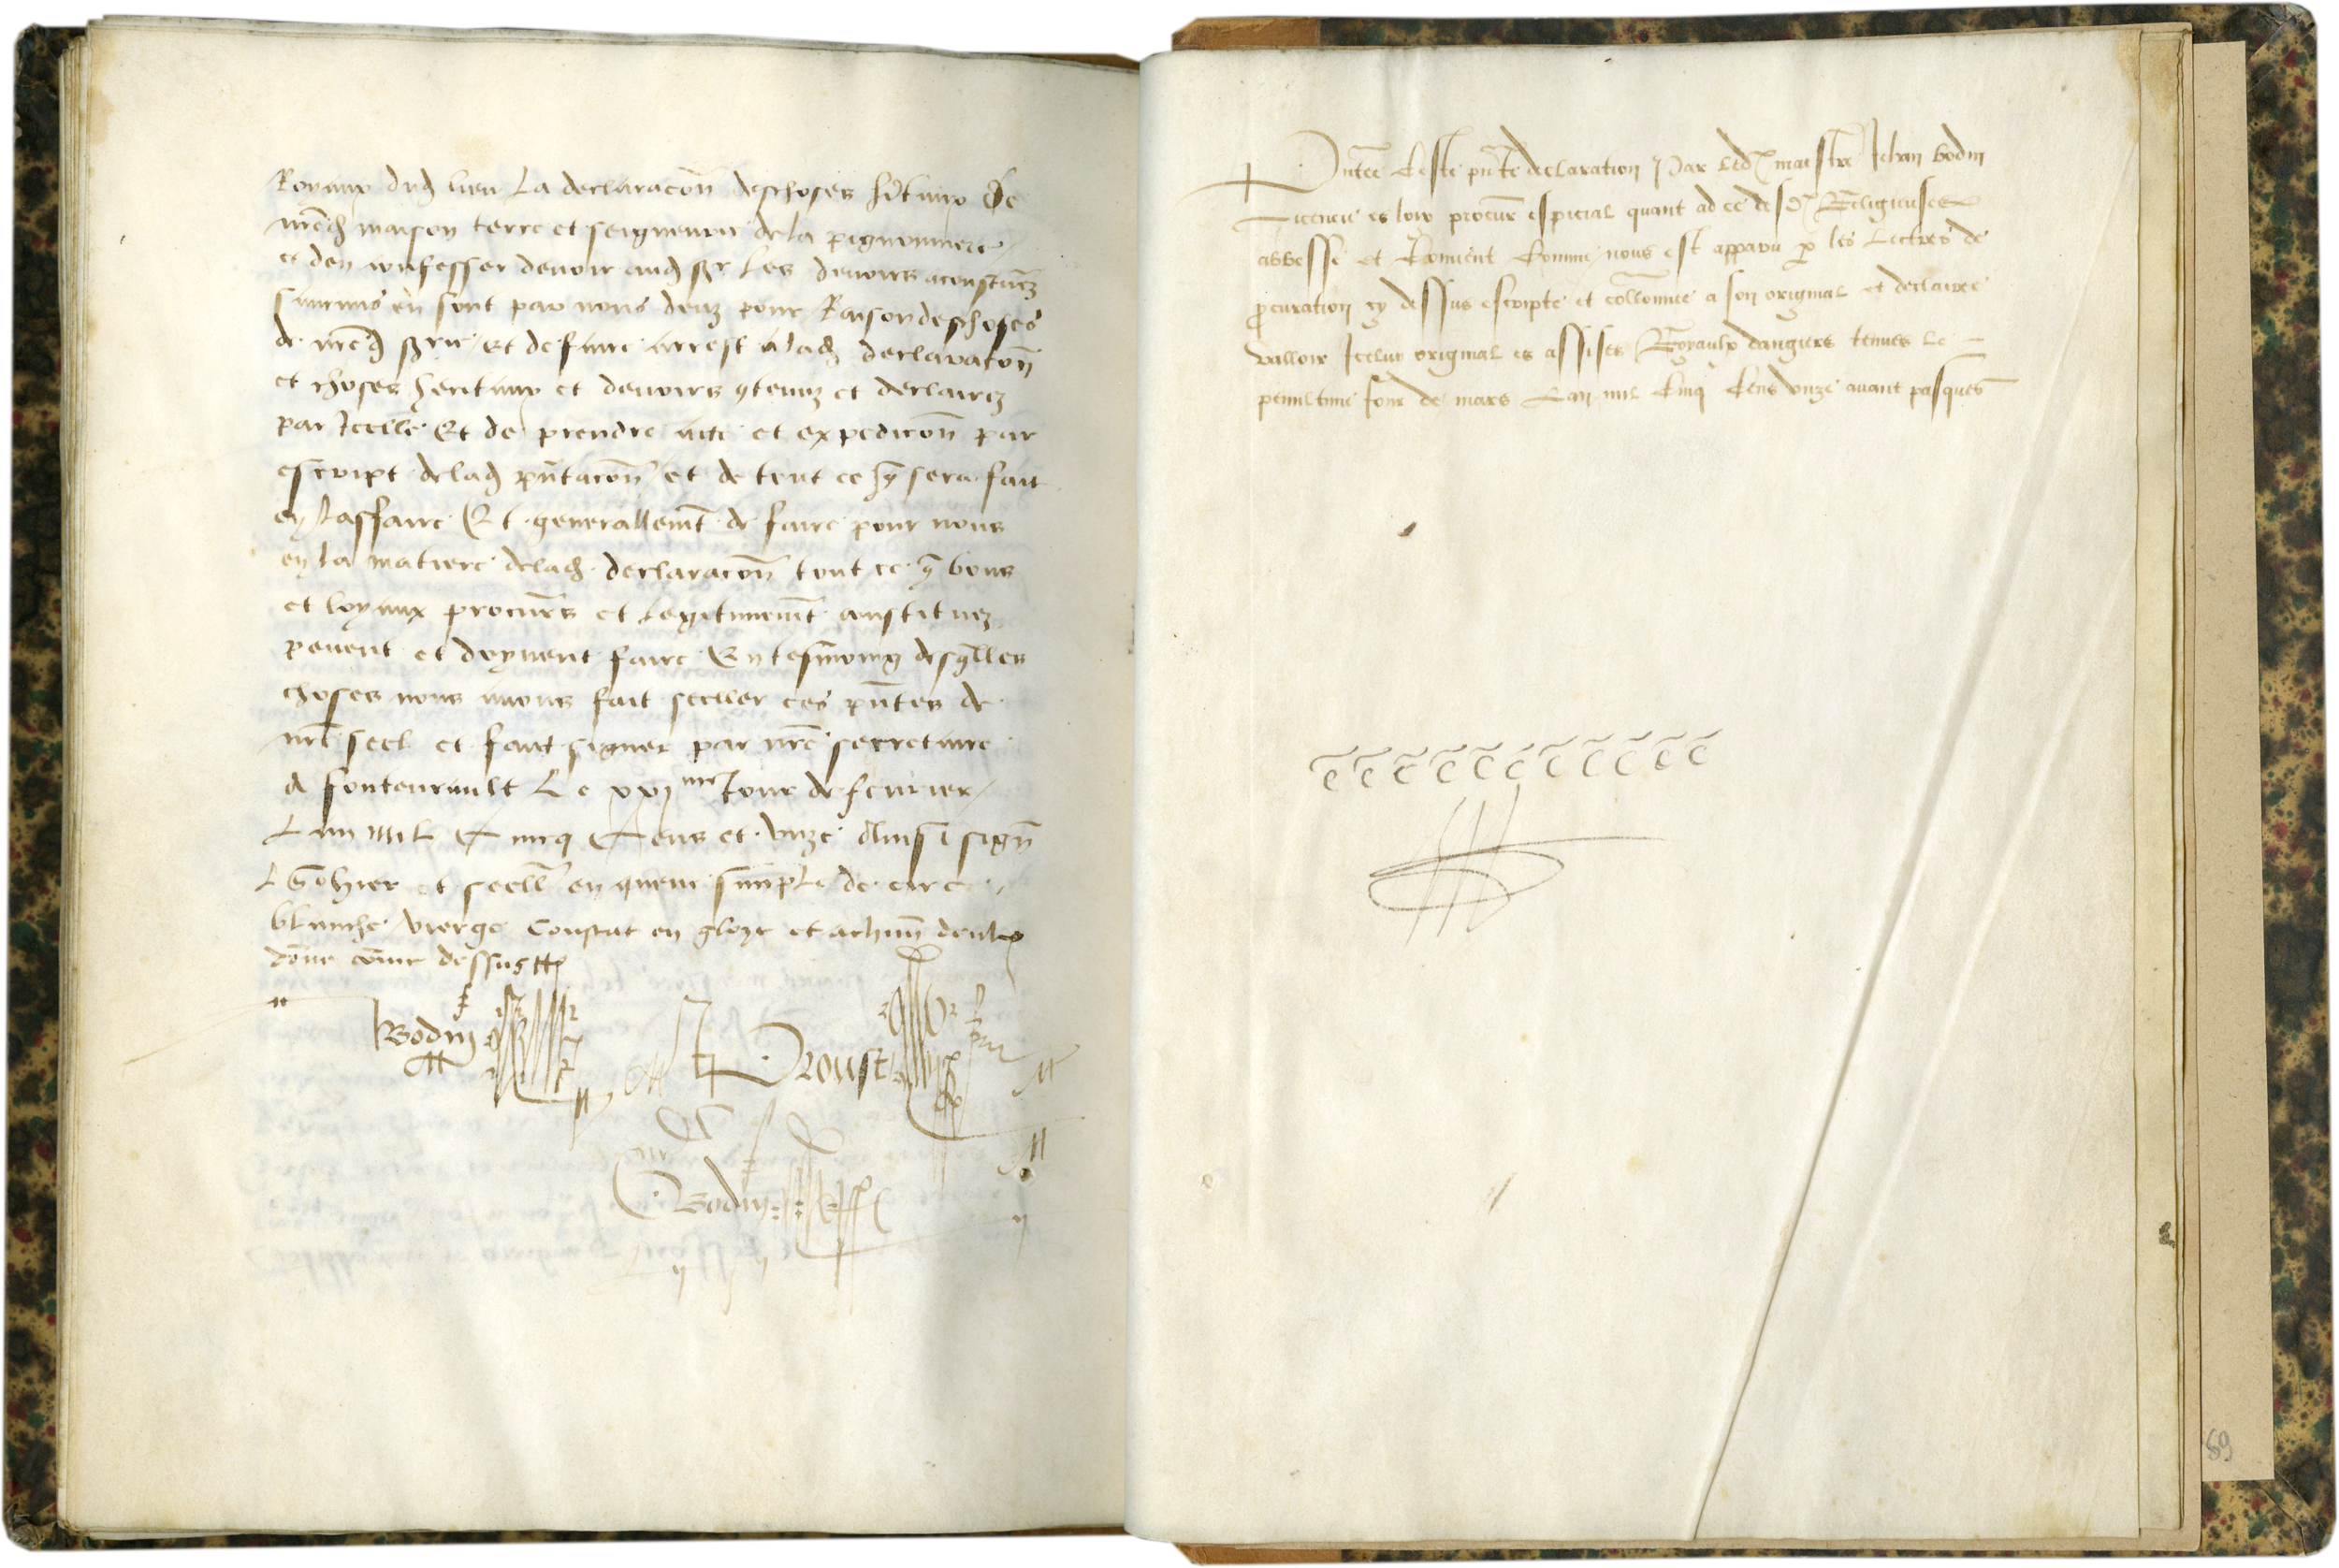 Royaux dud lieu La declaracon des choses heritaux de
nred maison terre et seigneurie de la pignonniere
et den confesser devoir aud sr les devoirs acoustumez
si aucuns en sont par nous deuz pour Raison des choses
de nred srie Et de faire arrest a lad declaracon
et choses heritaux et devoirs contenuz et declairez
par Icelle Et de prendre acte et expedicon par
escript de lad pntacon et de tout ce que sera fait
en laffaire Et generallemt de faire pour nous
en la matiere de lad declaracon tout ce que bons
et loyaux procurs et legitimemt constituez
pevent et doyvent faire En tesmoing desqlles
choses nous avons fait sceller ces pntes de
nre seel et fait signer par nre secretaire
A fontevrault Le xxime Jour de fevrier
Lan mil Cincq Cens et unze Ainsi sign
L Gohier et scelle en queue simple de cire
blanche vierge Constat en gloze
donne comme dessus
Bodin Proust
Bodin
Pntee Ceste pnte declaration Par led maistre Jehan bodin
Licencie es loix procur especial quant ad ce desd Religieuses
abbesse et Convent Comme nous est apparu par les Lectres de
procuration cy dessus escripte et collonnee a son original et declairee
valloir Icelluy original es assises Royaulx dangiers tenues le
penultime Jour de mars Lan mil Cinq Cens unze avant pasques
89